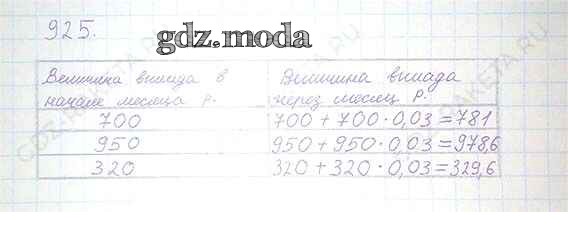 925.
gdz.moda
Величина вклада в начале месяца р. Величина вклада через месяц р.
700 700 + 700 · 0,03 = 781
950 950 + 950 · 0,03 = 978,6
320 320 + 320 · 0,03 = 329,6
GDZ-RAKETA.RU